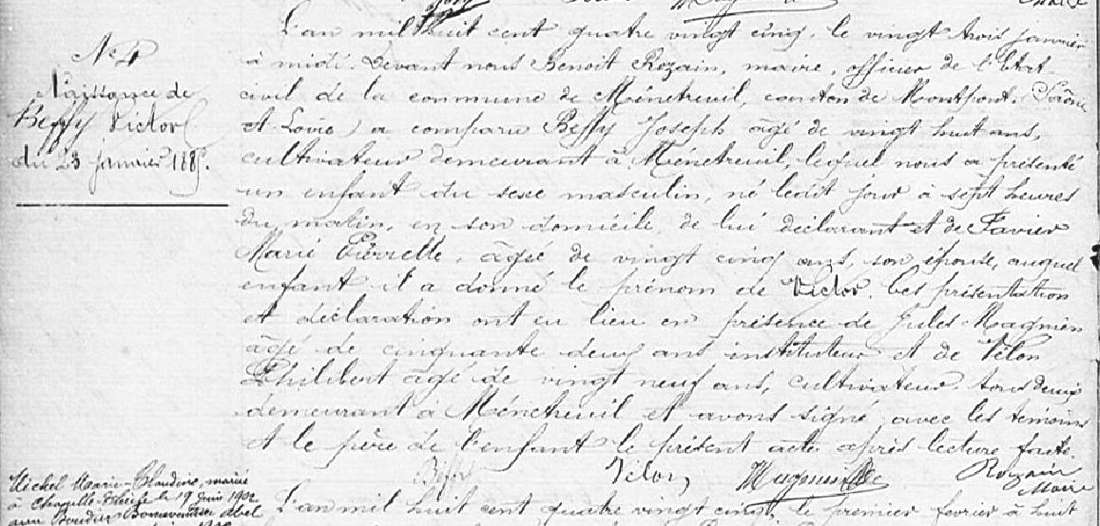 N° 4
Naissance de
Beffy Victor
du 23 janvier 1885.
L'an mil huit cent quatre vingt cinq, le vingt trois janvier
à midi. Devant nous Benoît Rozain, maire, officier de l'Etat-
civil de la commune de Ménetreuil, canton de Montpont, (Saône
et Loire) a comparu Beffy Joseph âgé de vingt huit ans,
cultivateur demeurant à Ménetreuil, lequel nous a présenté
un enfant du sexe masculin, né ledit jour à sept heures
du matin, en son domicile, de lui déclarant et de Favier
Marie Pierrette, âgée de vingt cinq ans, son épouse, auquel
enfant il a donné le prénom de Victor. Ces présentation
et déclaration ont eu lieu en présence de Jules Magnien
âgé de cinquante deux ans instituteur et de Velon
Philibert âgé de vingt neuf ans, cultivateur. tous deux
demeurant à Ménetreuil et avons signé avec les témoins
et le père de l'enfant le présent acte après lecture faite.
Beffy Velon Rozain
Maire
Michel Marie-Claudine, mariée
à le 19 Juin 1902
avec Boudier Bonaventure Abel
L'an mil huit cent quatre vingt cinq, le premier février à huit